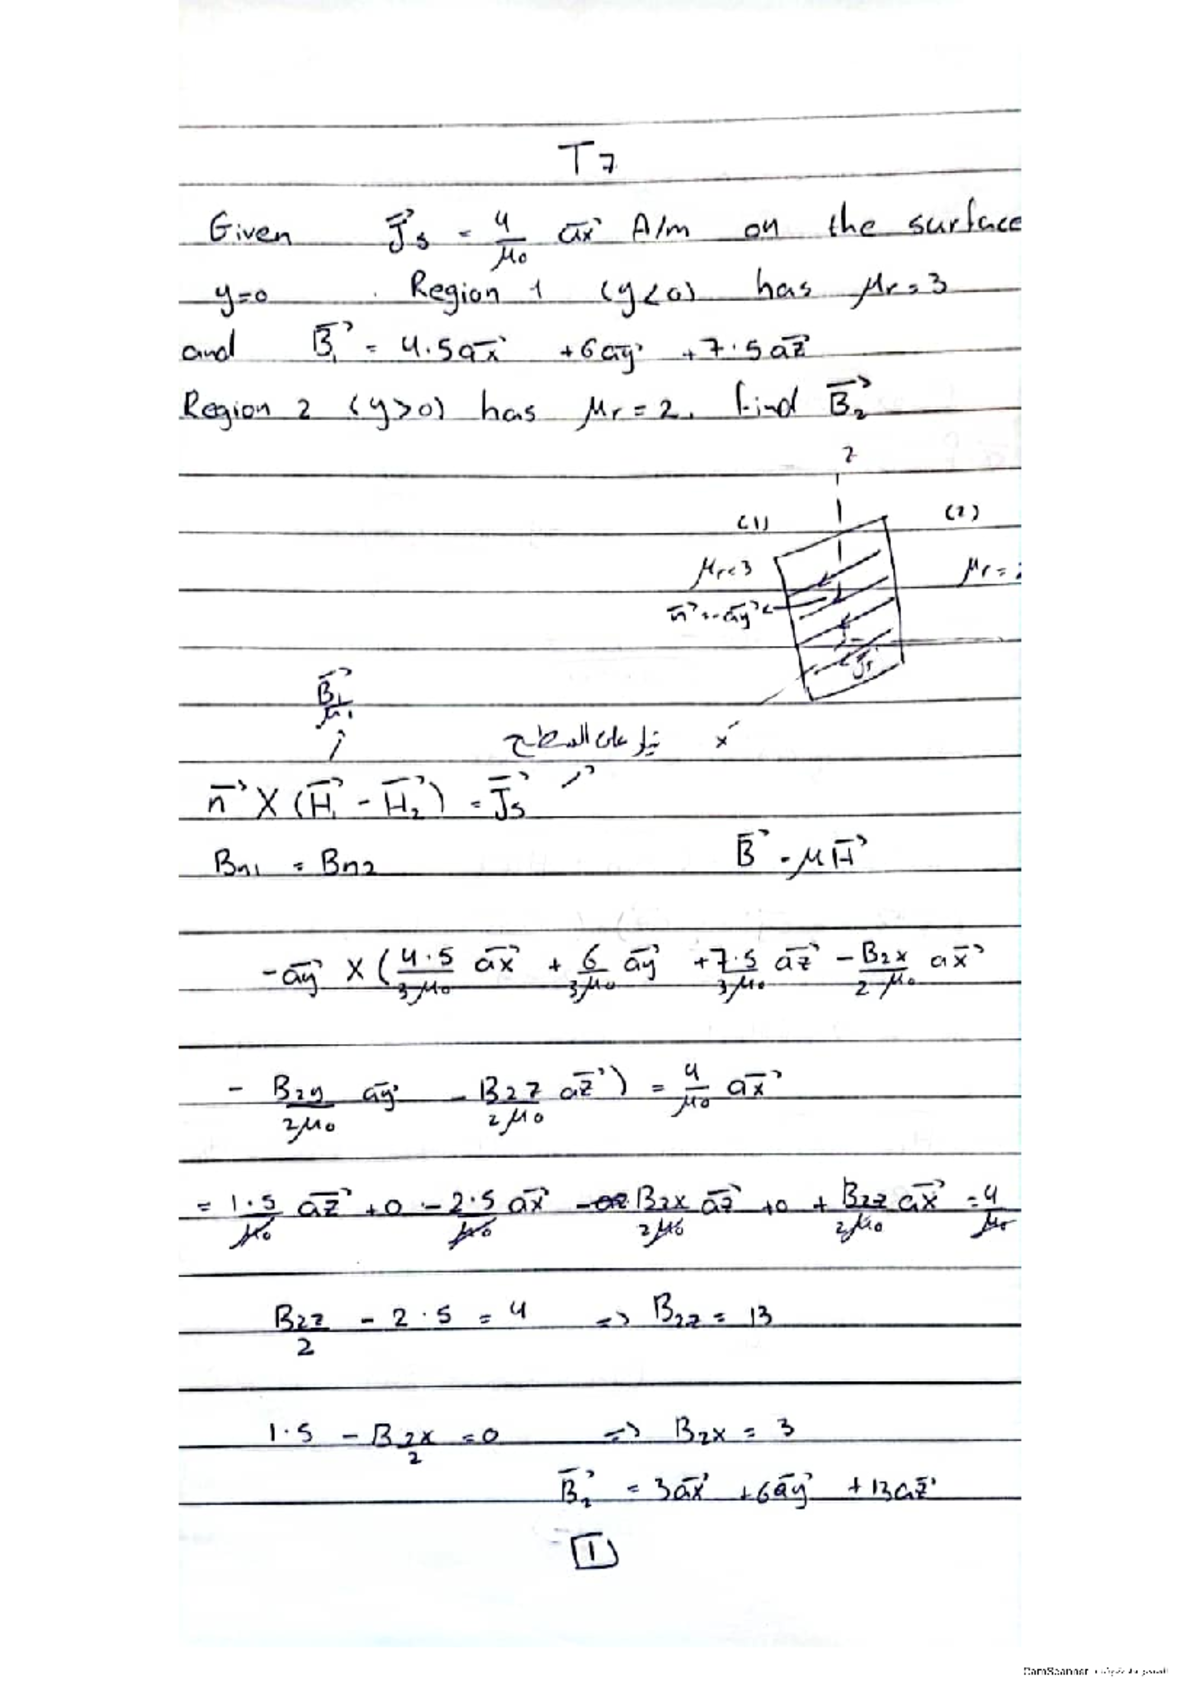 T7
Given J⃗s = 4/μ0 a⃗x A/m on the surface
y=0 . Region 1 (y<0) has μr=3
and B⃗1 = 4.5a⃗x + 6a⃗y + 7.5a⃗z
Region 2 (y>0) has μr=2. find B⃗2
z
(1) (2)
μr=3 μr=
n⃗=-a⃗y
Js
B⃗1/μ1
تيار على السطح x
n⃗ X (H⃗1 - H⃗2) = J⃗s
Bn1 = Bn2 B⃗ = μH⃗
-a⃗y X (4.5/3μ0 a⃗x + 6/3μ0 a⃗y + 7.5/3μ0 a⃗z - B2x/2μ0 a⃗x
- B2y/2μ0 a⃗y - B2z/2μ0 a⃗z) = 4/μ0 a⃗x
= 1.5/μ0 a⃗z + 0 - 2.5/μ0 a⃗x - B2x/2μ0 a⃗z + 0 + B2z/2μ0 a⃗x = 4/μ0
B2z/2 - 2.5 = 4 => B2z = 13
1.5 - B2x/2 = 0 => B2x = 3
B⃗2 = 3a⃗x + 6a⃗y + 13a⃗z
1
CamScanner